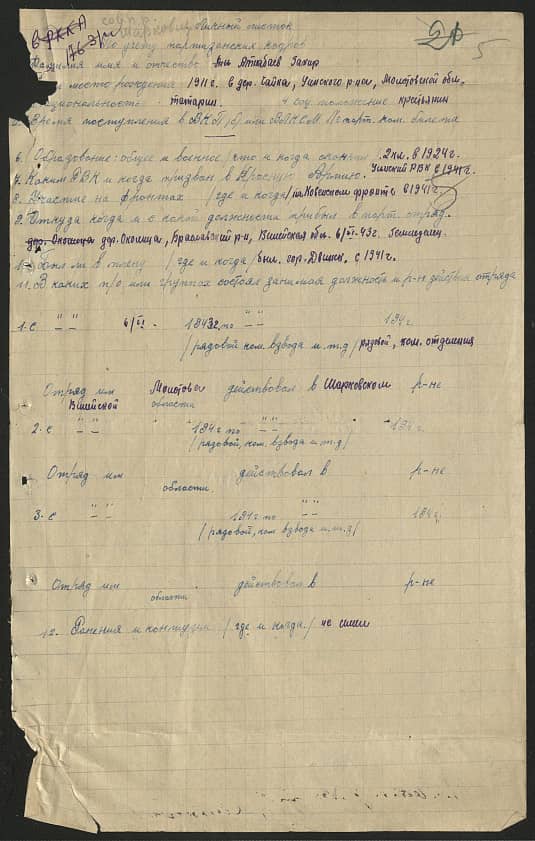 в РККА
Личный листок
по учету партизанских кадров
Фамилия имя и отчество
место рождения 1911 г. в дер. Сайка, Уинского р-на, Молотовской обл.
национальность татарин. 4. соц. положение крестьянин
5. Время поступления в ВКП(б) или ВЛКСМ № парт. ком. билета —
6. Образование: общее и военное /что и когда окончил 2 кл. в 1924 г.
7. Каким РВК и когда призван в Красную Армию. Уинский РВК с 1941 г.
8. Участие на фронтах /где и когда/ в 1941 г.
9. Откуда когда и с какой должности прибыл в парт. отряд.
дер. Околица, Браславский р-н, Вилейская обл. 6/VI-43 г.
10. Был ли в плену /где и когда/ был. гор. Двинск. с 1941 г.
11. В каких п/о или группах состоял занимая должность и р-н действия отряда
1. с " " 6/VI 1943 г. по " " 194 г.
/рядовой ком. взвода и т.д/ рядовой, ком. отделения
Отряд им Молотова действовал в Шарковском р-не
Вилейской области
2. с " " 194 г по " " 194 г.
/рядовой, ком. взвода и т.д/
Отряд им действовал в р-не
области
3. с " " 194 г. по " " 194 г.
/рядовой, ком взвода и т.д/
Отряд им действовал в р-не
области
12. Ранения и контузии /где и когда/ не имел